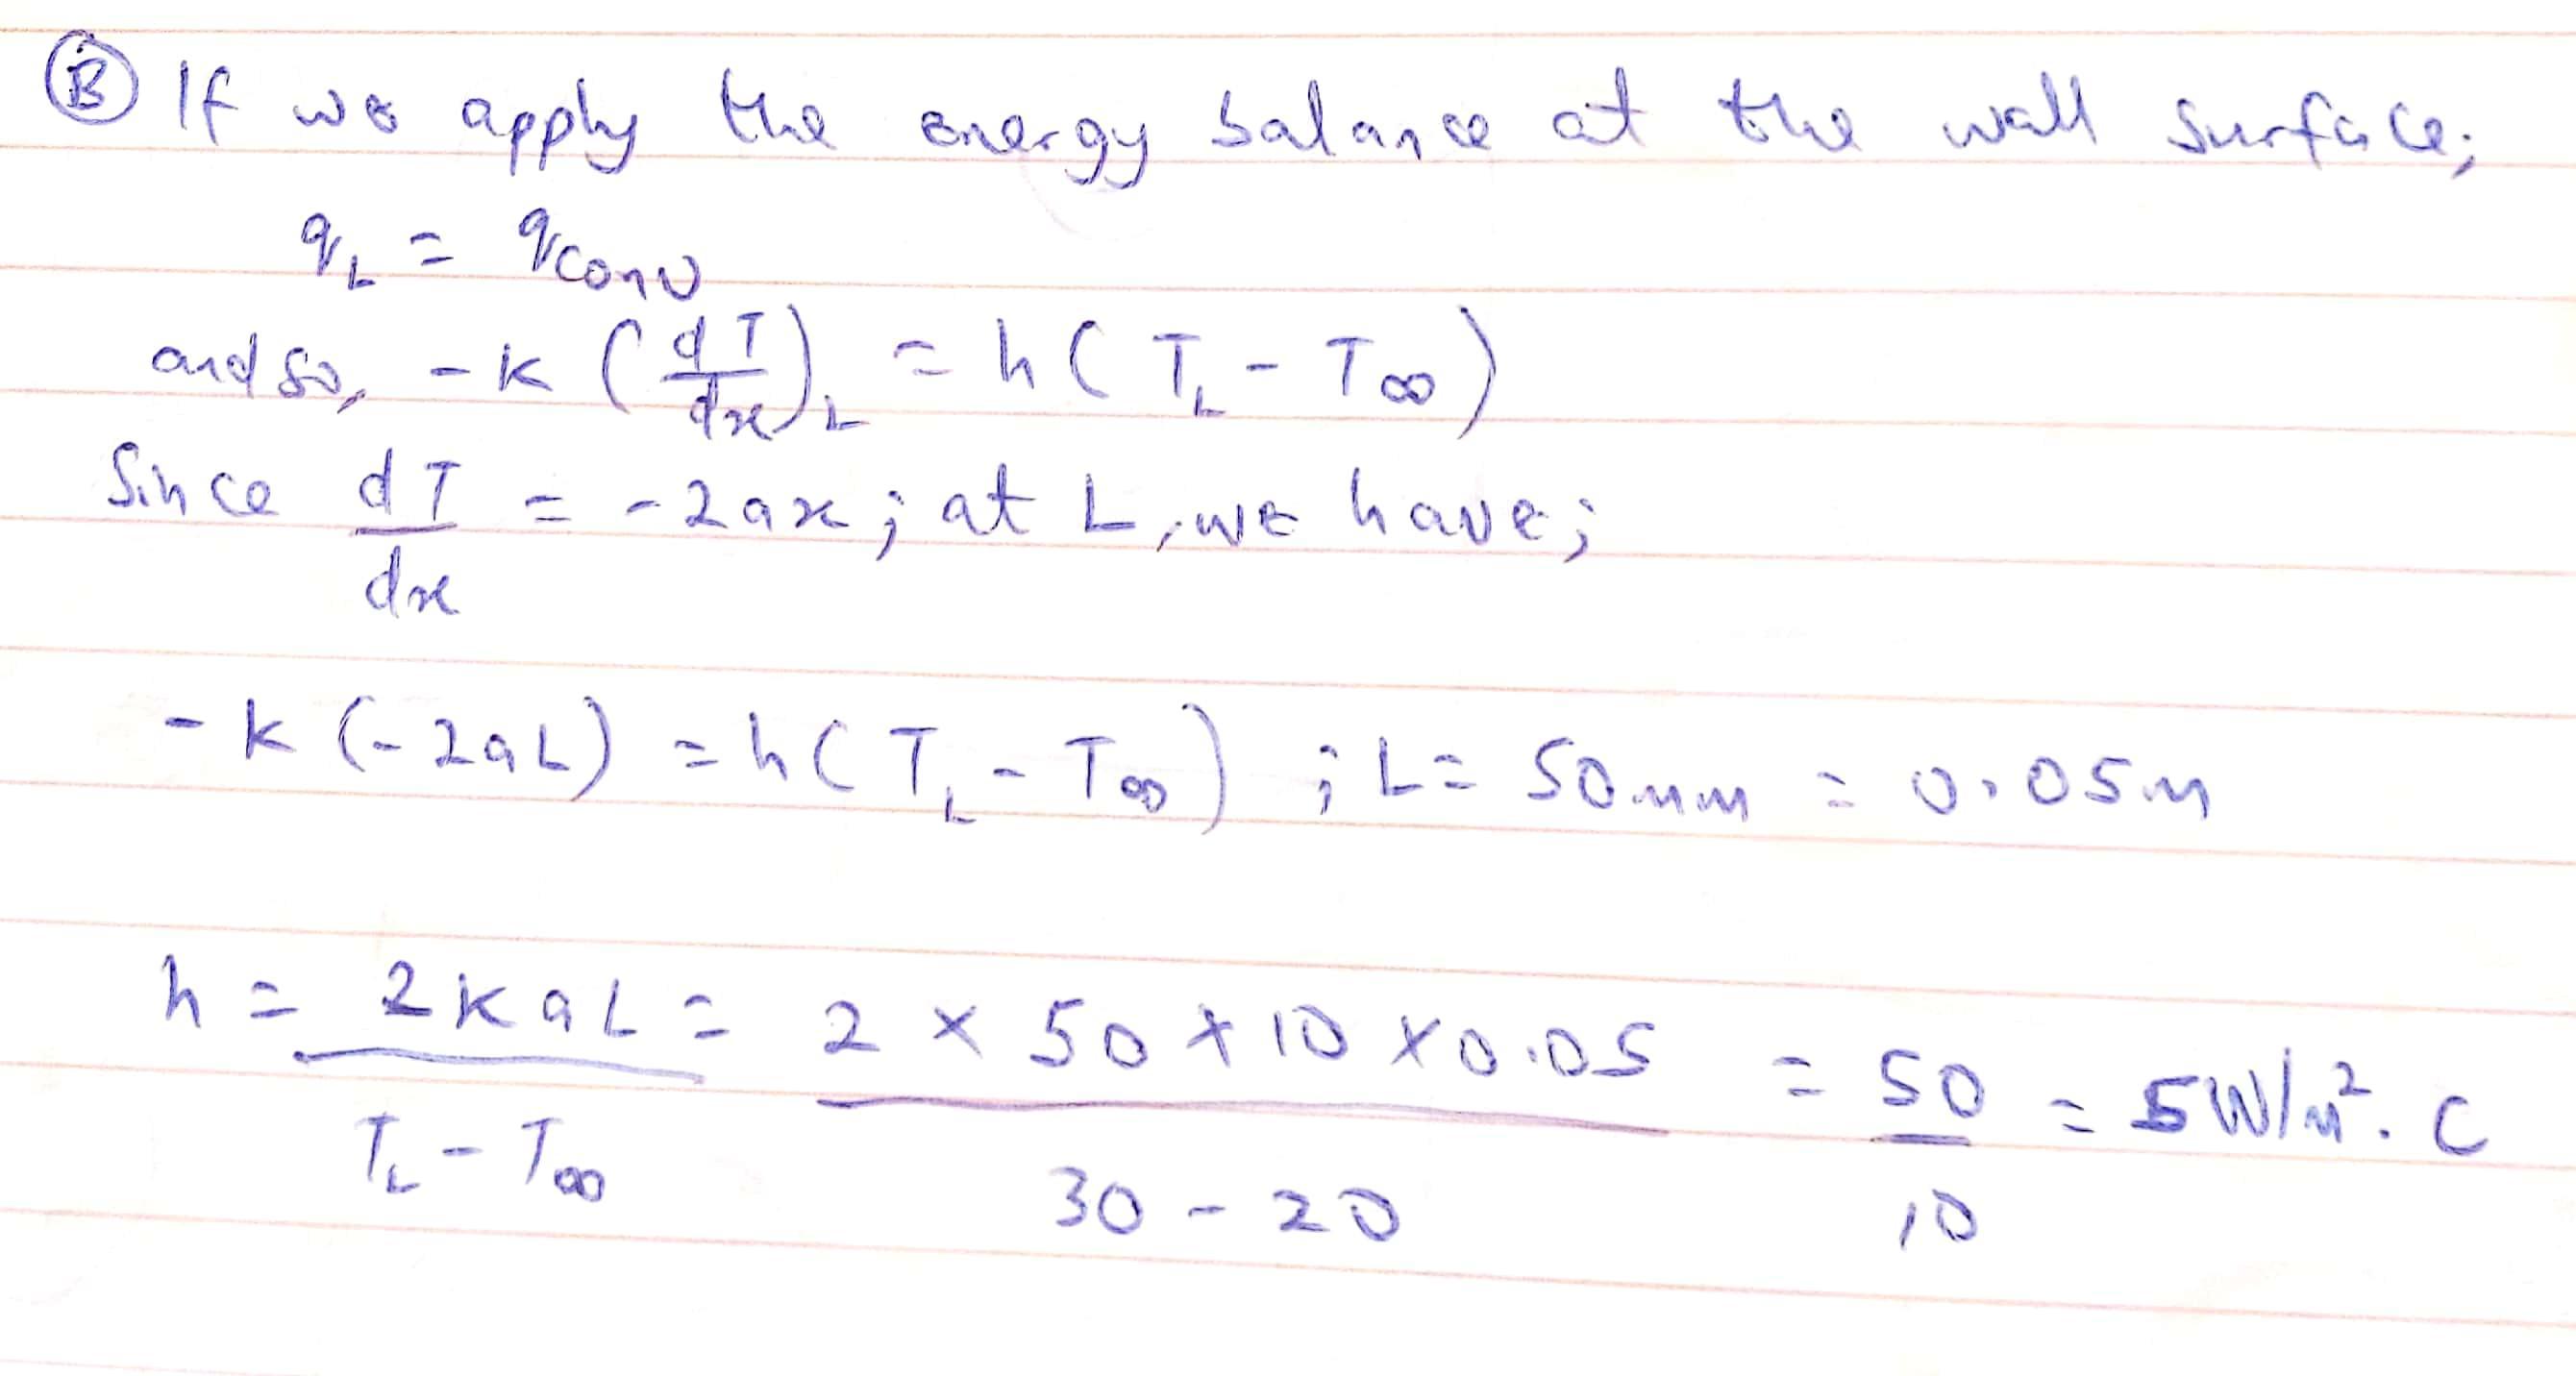 Ⓑ If we apply the energy balance at the wall surface;
q_L = q_conv
and so, -k (dT/dx)_L = h(T_L - T∞)
Since dT/dx = -2ax; at L, we have;
-k (-2aL) = h(T_L - T∞) ; L = 50mm = 0.05m
h = 2kaL / T_L - T∞ = 2 × 50 × 10 × 0.05 / 30 - 20 = 50 / 10 = 5W/m². C